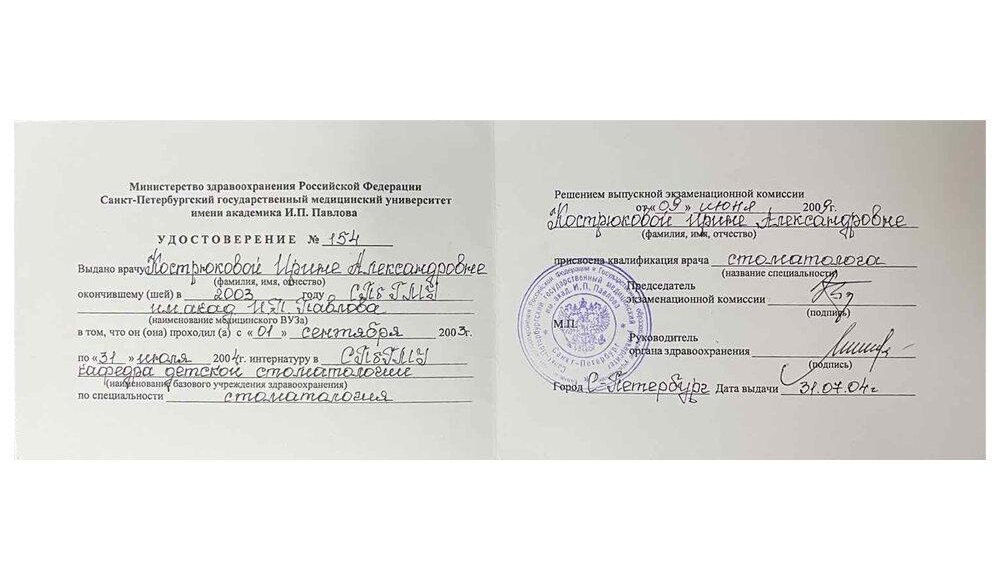 Министерство здравоохранения Российской Федерации
Санкт-Петербургский государственный медицинский университет
имени академика И.П. Павлова
УДОСТОВЕРЕНИЕ № 154
Выдано врачу Кострюковой Ирине Александровне
(фамилия, имя, отчество)
окончившему (шей) в 2003 году СПбГМУ
им акад И.П. Павлова
(наименование медицинского ВУЗа)
в том, что он (она) проходил (а) с «01» сентября 2003г.
по «31» июля 2004г. интернатуру в СПбГМУ
кафедра детской стоматологии
(наименование базового учреждения здравоохранения)
по специальности стоматология
Решением выпускной экзаменационной комиссии
от «09» июня 2009г.
Кострюковой Ирине Александровне
(фамилия, имя, отчество)
присвоена квалификация врача стоматолога
(название специальности)
Председатель
экзаменационной комиссии
(подпись)
М.П.
Руководитель
органа здравоохранения
(подпись)
Город С-Петербург Дата выдачи 31.07.04г